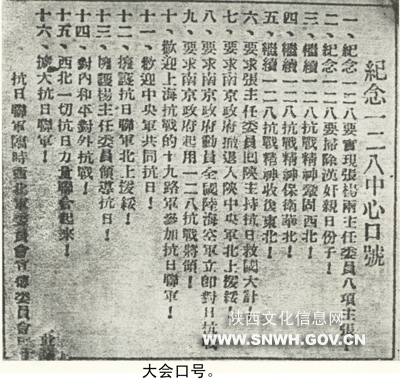 紀念一二八中心口號
一、紀念一二八要實現張楊兩主任委員八項主張！
二、紀念一二八要掃除漢奸親日份子！
三、繼續一二八抗戰精神鞏固西北！
四、繼續一二八抗戰精神保衛華北！
五、繼續一二八抗戰精神收復東北！
六、要求張主任委員回陝主持抗日救國大計！
七、要求南京政府撤退入陝中央軍北上援綏！
八、要求南京政府動員全國陸海空軍立即對日抗戰
九、要求南京政府起用一二八抗戰將領！
十、歡迎上海抗戰的十九路軍參加抗日聯軍！
十一、歡迎中央軍共同抗日！
十二、擁護抗日聯軍北上援綏！
十三、擁護楊主任委員領導抗日！
十四、對內和平對外抗戰！
十五、西北一切抗日力量聯合起來！
十六、擴大抗日聯軍！
抗日聯軍臨時西北軍委員會宣傳委員會
陕西文化信息网
WWW.SNWH.GOV.CN
大会口号。